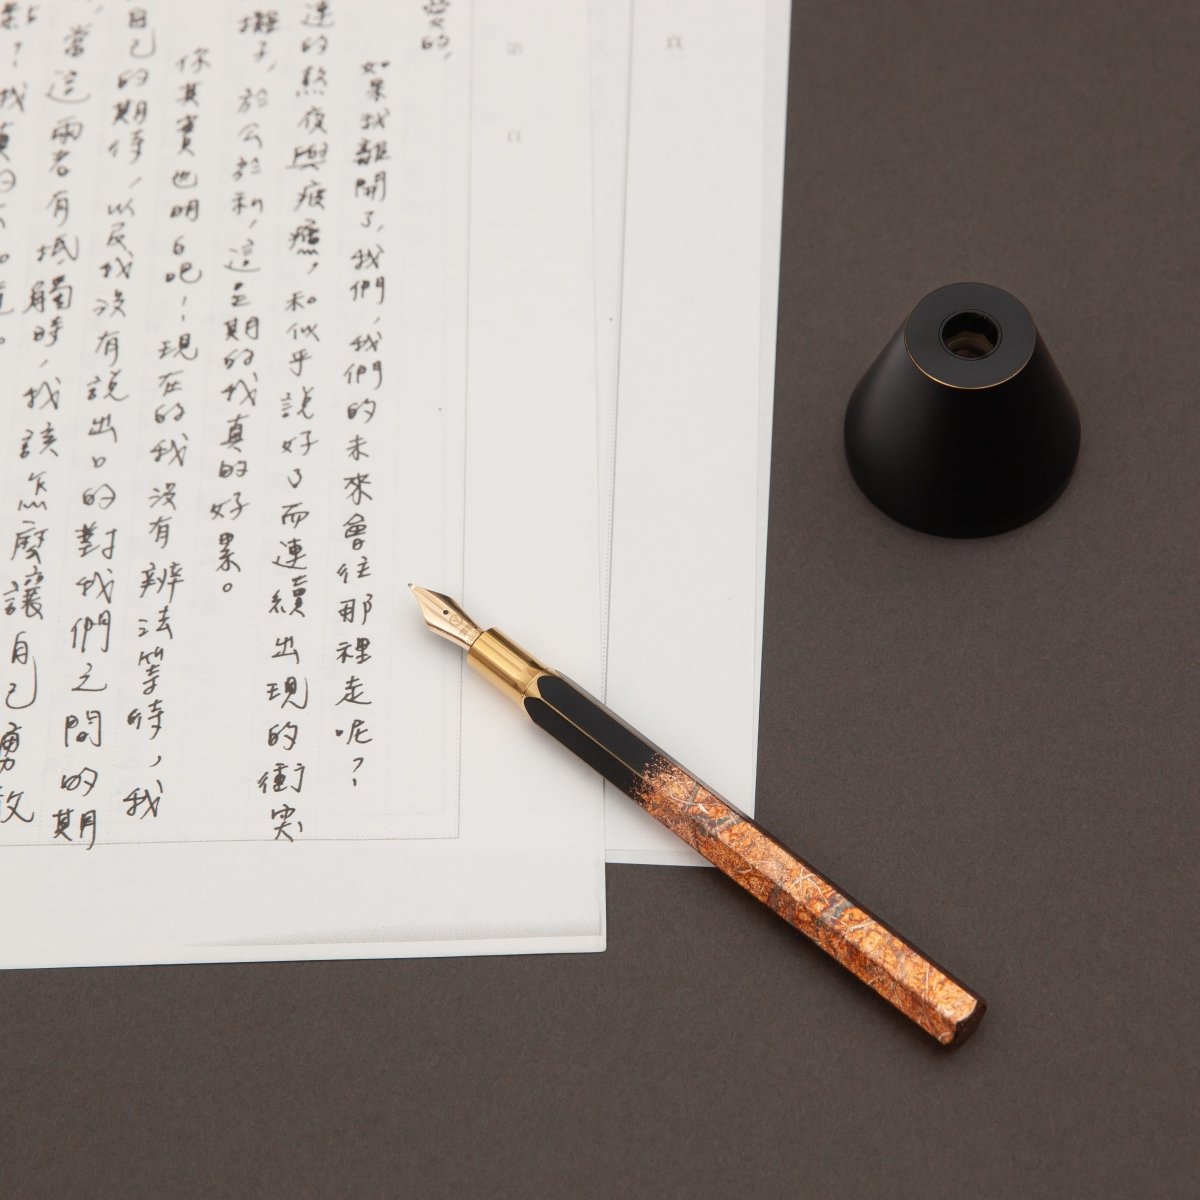 愛的，
如果我離開了，我們，我們的未來會往那裡走呢？
連的熬夜與疲憊，和似乎說好了而連續出現的衝突
擬子，於公於私，這星期的我真的好累。
你其實也明白吧！現在的我沒有辦法等待，我
自己的期待，以及我沒有說出口的對我們之間的期
當這兩者有抵觸時，我該怎麼讓自己
？我真的不知道。
第
頁
頁